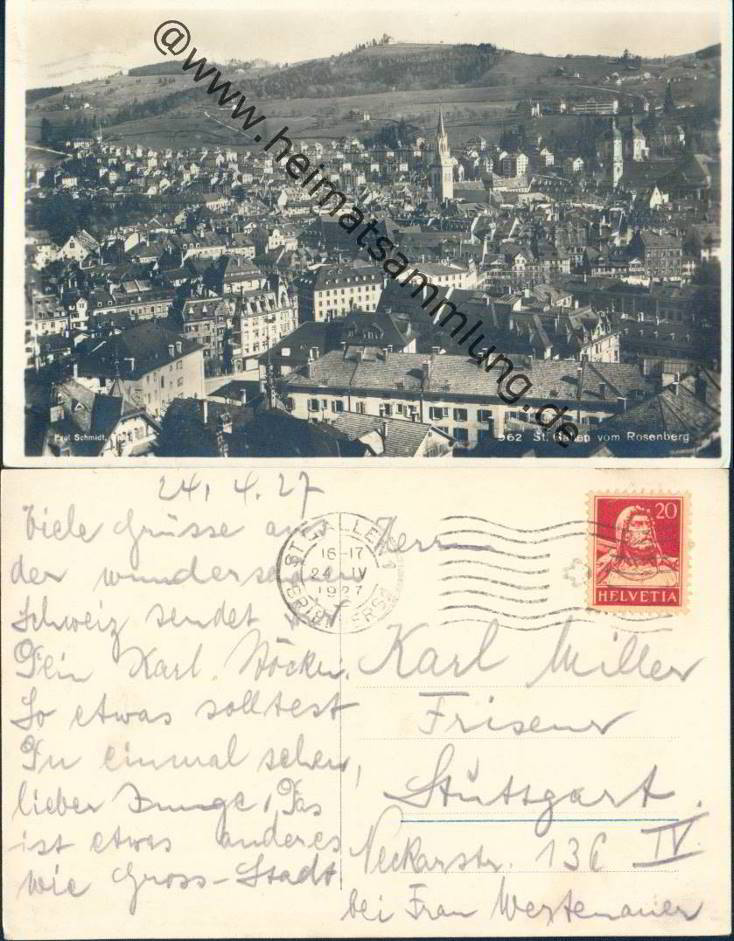 @www.heimatsammlung.de
Paul Schmidt,
962 St. Gallen vom Rosenberg
24. 4. 27
Viele Grüsse aus
der wunderschönen
Schweiz sendet
Dein Karl.
So etwas solltest
Du einmal sehen,
lieber Junge, Das
ist etwas anderes
wie Gross-Stadt
ST. GALLEN 1
16-17
24. IV
1927
BRIEFVERSAND
20
HELVETIA
Herrn
Karl Miller
Friseur
Stuttgart.
Neckarstr. 136 IV.
bei Frau Westenauer